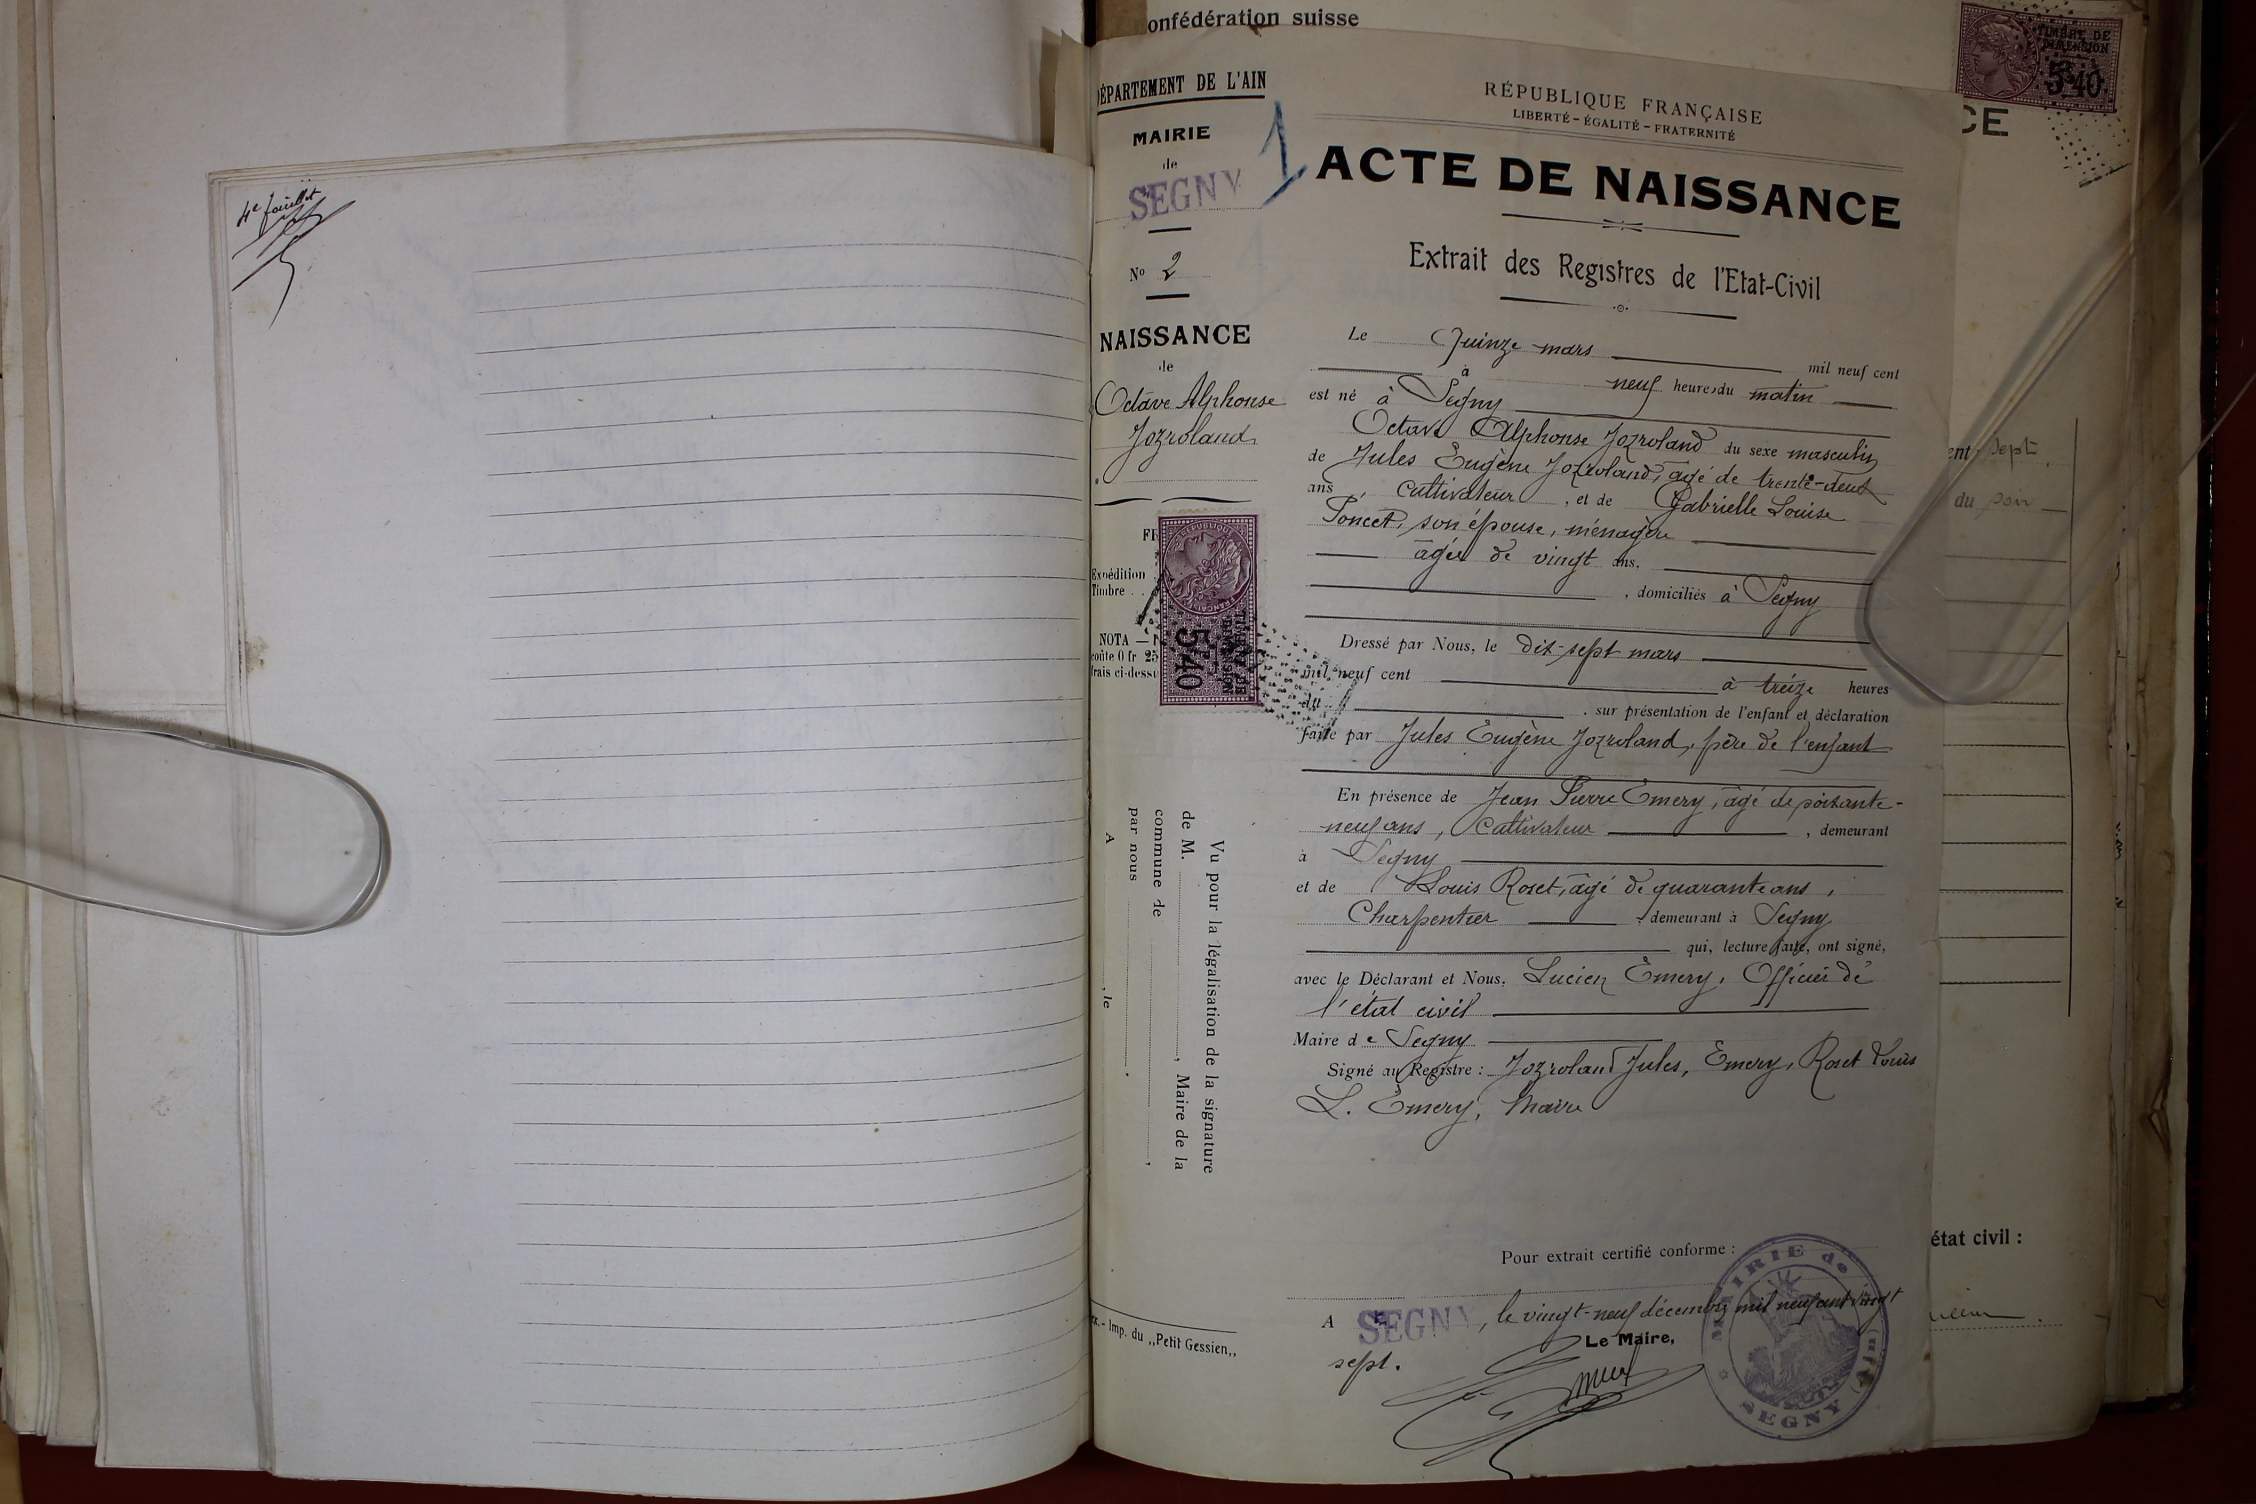 4e feuillet
onfédération suisse
TIMBRE DE
DIMENSION
5F40
CE
DÉPARTEMENT DE L'AIN
MAIRIE
de
SEGNY
No 2
NAISSANCE
de
Octave Alphonse
Jozroland
1
FR
Expédition
Timbre . .
NOTA —
coûte 0 fr 25
frais ci-dessu
RÉPUBLIQUE FRANÇAISE
TIMBRE DE
DIMENSION
5F40
Vu pour la légalisation de la signature
de M. , Maire de la
commune de ,
par nous ,
A , le
ex.- Imp. du ,,Petit Gessien,,
RÉPUBLIQUE FRANÇAISE
LIBERTÉ - ÉGALITÉ - FRATERNITÉ
ACTE DE NAISSANCE
Extrait des Registres de l'Etat-Civil
Le Quinze mars mil neuf cent
à neuf heures du matin
est né à Segny
Octave Alphonse Jozroland du sexe masculin
de Jules Eugène Jozroland, âgé de trente-deux
ans, cultivateur, et de Gabrielle Louise
Poncet, son épouse, ménagère
âgée de vingt ans,
, domiciliés à Segny
Dressé par Nous, le dix-sept mars
mil neuf cent à treize heures
du . sur présentation de l'enfant et déclaration
faite par Jules Eugène Jozroland, père de l'enfant
En présence de Jean Pierre Emery, âgé de soixante-
neuf ans, Cultivateur , demeurant
à Segny
et de Louis Roset, âgé de quarante ans,
Charpentier , demeurant à Segny
qui, lecture faite, ont signé,
avec le Déclarant et Nous, Lucien Emery, Officier de
l'état civil
Maire de Segny
Signé au Registre : Jozroland Jules, Emery, Roset Louis
L. Emery, Maire
Pour extrait certifié conforme :
A SEGNY, le vingt-neuf décembre mil neuf cent vingt
sept.
Le Maire,
MAIRIE de SEGNY (Ain)
ent sept
du soir
état civil :